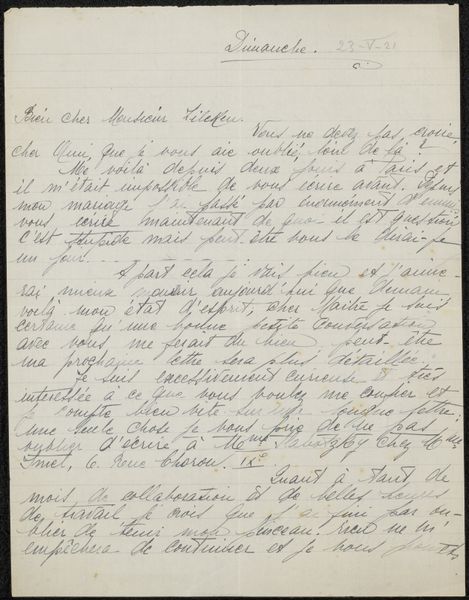 Dimanche. 23-V-21
Bien cher Monsieur Zilcken.
Vous ne devez pas croire
cher Ami, que je vous aie oublié, loin de là !
Me voilà depuis deux jours à Paris et
il m'était impossible de vous écrire avant. Depuis
mon mariage j'ai passé par énormément d'ennuis
vous écrire maintenant de quoi il est question
c'est stupide mais peut être vous le dirai-je
un jour
A part cela je vais bien et j'aime-
rai mieux mourir aujourd'hui que demain
voilà mon état d'esprit, cher Maître je suis
certaine qu'une bonne petite conversation
avec vous me ferait du bien, peut être
ma prochaine lettre sera plus détaillée.
Je suis excessivement curieuse et très
intéressée à ce que vous voulez me confier et
je compte bien vite sur une longue lettre:
une seule chose je vous prie de ne pas
oublier d'écrire à Mme chez Mme
6. Rue Choron. IXe
Quant à tant de
mois, de collaboration et de belles heures
de travail je crois que j'ai fini par ou-
blier de tenir mon pinceau. Rien ne m'
empêchera de continuer et je vous